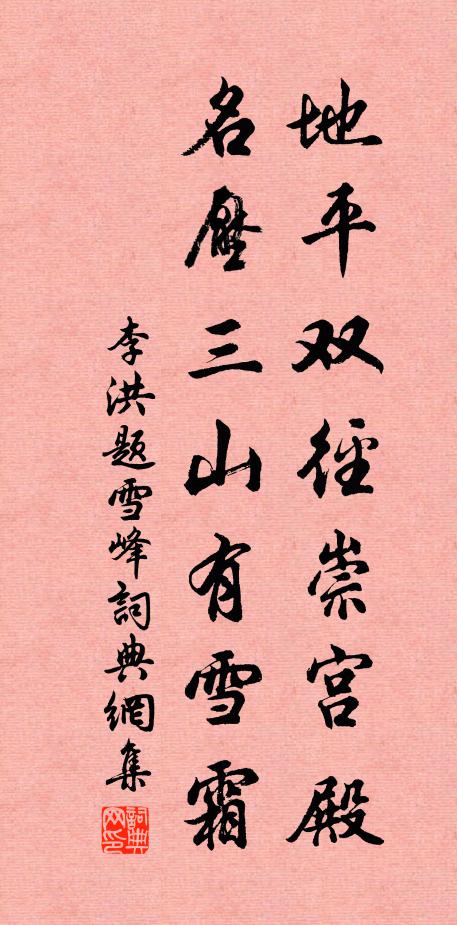 地平双径崇宫殿
名壓三山有雪霜
李洪题雪峰詞典網集
詞典网印